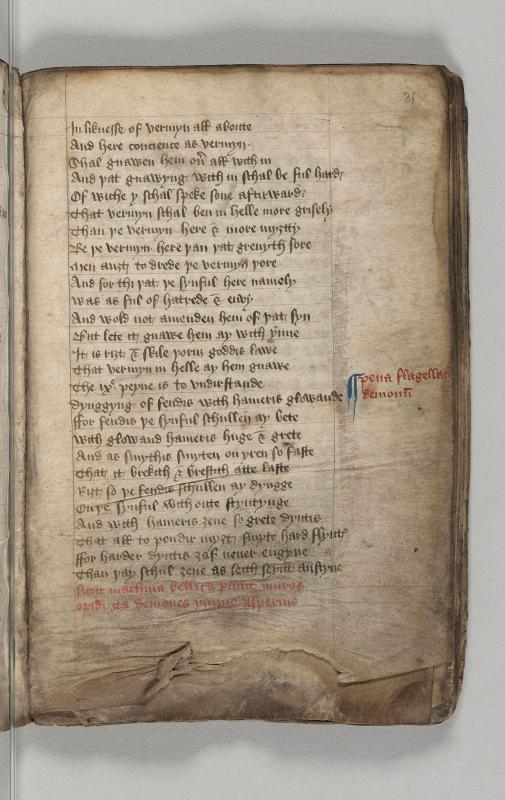 31
In liknesse of vermyn all aboute
And here concience as vermyn
Shal gnawen hem on all with in
And þat gnawyng with in schal be ful hard
Of wiche y schal speke sone aftirward
That vermyn schal ben in helle more grisely
Than þe vermyn here & more myȝtty
Be þe vermyn here þan þat greuyth sore
Men auȝt to drede þe vermyn þore
And for thi þat þe synful here namely
Was as ful of hatrede & envy
And wold not amenden hem of þat syn
But lete it gnawe hem ay with ynne
It is riȝt & skile þorw goddis lawe
That vermyn in helle ay hem gnawe
The ixe peyne is to vndirstande
dynggyng of fendis with hameris glowande
pena flagellac
demoniu
Ffor fendis þe synful schullen ay bete
With glowand hameris huge & grete
And as smythis smyten on yren so faste
That it brekith & brestith atte laste
Riȝt so þe fendis schullen ay dyngge
On þe synful with oute styntynge
And with hameris ȝeue so grete dyntis
That all to poudir myȝt smyte hard flynt
Ffor harder dyntis ȝaf neuer engyne
Than þay schul ȝeue as seith seynt austyne
Sicut machina bellica percutit muros
opidi ita demones ymmo asperius